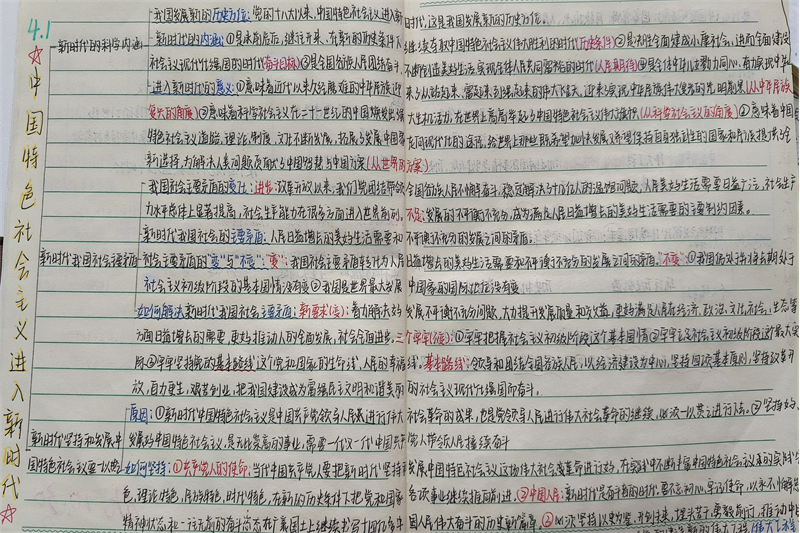 4.1
☆中国特色社会主义进入新时代☆
我国发展新的历史方位：党的十八大以来，中国特色社会主义进入新时代，这是我国发展新的历史方位。
新时代的科学内涵
新时代的内涵：①是承前启后，继往开来，在新的历史条件下继续夺取中国特色社会主义伟大胜利的时代(历史条件)②是决胜全面建成小康社会，进而全面建设
社会主义现代化强国的时代(奋斗目标)③是全国各族人民团结奋斗，不断创造美好生活，实现全体人民共同富裕的时代(人民期待)④是全体中华儿女勠力同心，奋力实现中华
进入新时代的意义：①意味着近代以来久经磨难的中华民族迎来了从站起来、富起来到强起来的伟大飞跃，迎来实现中华民族伟大复兴的光明前景(从中华民族
复兴的角度)②意味着科学社会主义在二十一世纪的中国焕发出强大生机活力，在世界上高高举起了中国特色社会主义伟大旗帜(从科学社会主义的角度)③意味着中国
特色社会主义道路，理论，制度，文化不断发展，拓展了发展中国家走向现代化的途径，给世界上那些既希望加快发展又希望保持自身独立性的国家和民族提供了全
新选择，为解决人类问题贡献了中国智慧与中国方案(从世界的
我国社会主要矛盾的变化：进步：改革开放以来，我们党团结带领全国各族人民不懈奋斗，稳定解决了十几亿人的温饱问题，人民美好生活需要日益广泛，社会生产
力水平总体上显著提高，社会生产能力在很多方面进入世界前列，不足：发展的不平衡不充分，成为满足人民日益增长的美好生活需要的主要制约因素。
新时代我国社会的主要矛盾：人民日益增长的美好生活需要和不平衡不充分的发展之间的矛盾。
新时代我国社会主要矛盾
社会主要矛盾的“变”与“不变”：“变”：我国社会主要矛盾转化为人民日益增长的美好生活需要和不平衡不充分的发展之间的矛盾。“不变”：①我国仍处于并将长期处于
社会主义初级阶段的基本国情没有变②我国是世界最大发展中国家的国际地位没有变
如何解决新时代我国社会主要矛盾：新要求( )：着力解决好发展不平衡不充分问题，大力提升发展质量和效益，更好满足人民在经济，政治，文化，社会，生态等
方面日益增长的需要，更好推动人的全面发展，社会全面进步，三个牢牢( )：①牢牢把握社会主义初级阶段这个基本国情②牢牢立足社会主义初级阶段这个最大实
际③牢牢坚持党的基本路线这个党和国家的生命线，人民的幸福线，基本路线：领导和团结全国各族人民，以经济建设为中心，坚持四项基本原则，坚持改革开
放，自力更生，艰苦创业，把我国建设成为富强民主文明和谐美丽的社会主义现代化强国而奋斗。
原因：①新时代中国特色社会主义是中国共产党领导人民进行伟大社会革命的成果，也是党领导人民进行伟大社会革命的继续，必须一以贯之进行下去。②坚持和
新时代坚持和发展中
发展好中国特色社会主义，是无比崇高的事业，需要一代又一代中国共产党人带领人民接续奋斗
国特色社会主义要一以贯之
如何坚持：①共产党人的使命：当代中国共产党人要把新时代坚持和发展中国特色社会主义这场伟大社会革命进行好，在实践中不断丰富中国特色社会主义的实践特
色，理论特色，民族特色，时代特色，在新的历史条件下把党和国家各项事业继续推向前进。②中国人民：新时代是奋斗者的时代，要不忘初心，牢记使命，以永不懈怠的
精神状态和一往无前的奋斗姿态在广袤国土上继续书写十四亿多中国人民伟大奋斗的历史新篇章。②必须坚持以史为鉴，开创未来，埋头苦干，勇毅前行，推动中